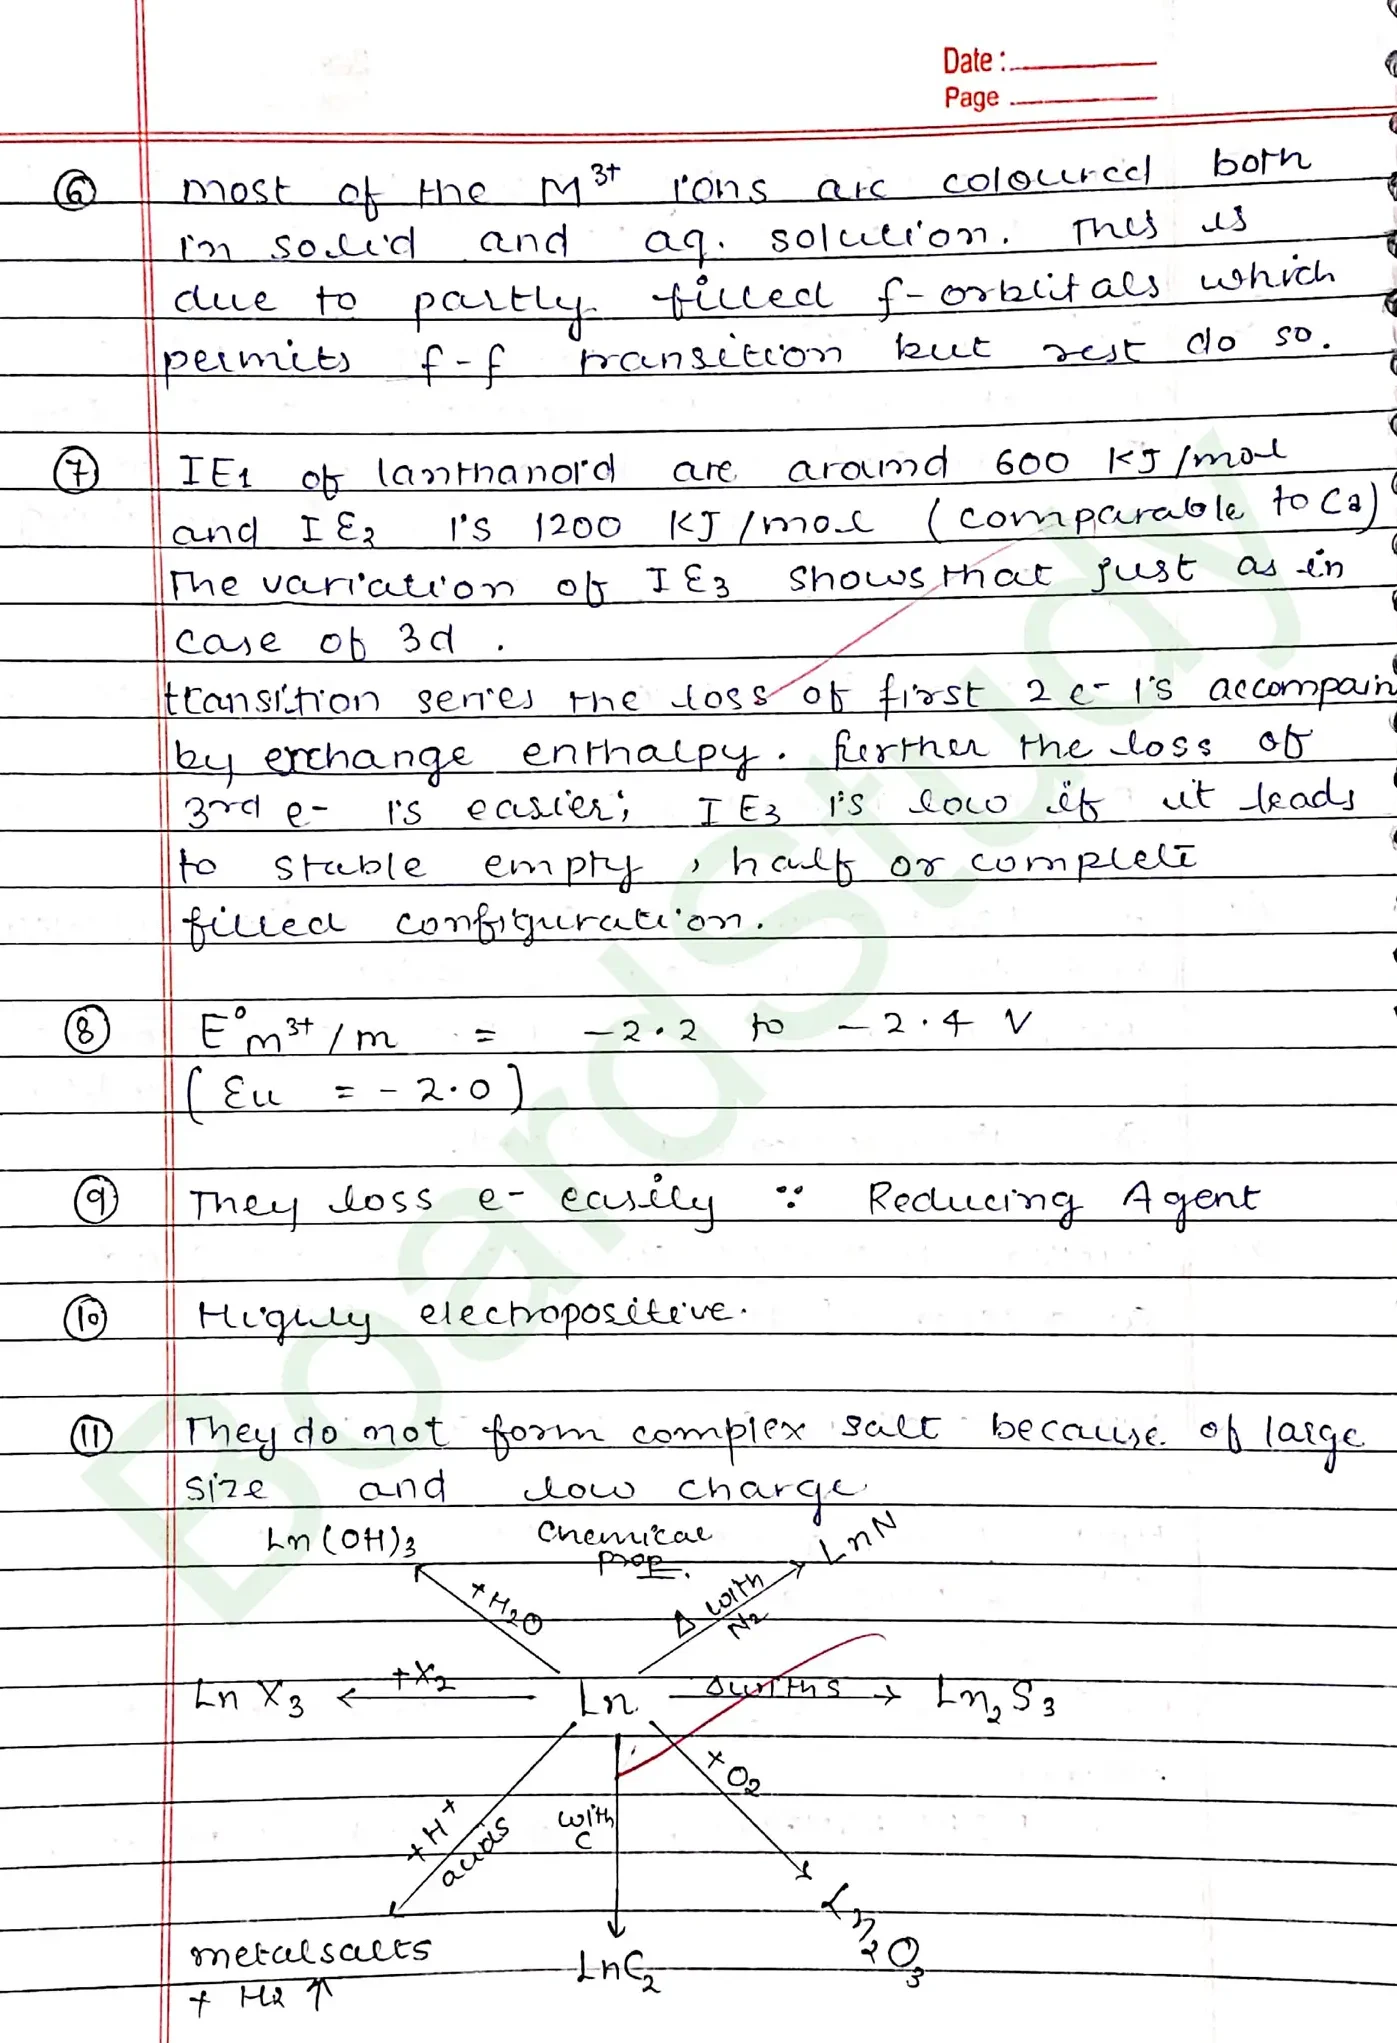 Date :
Page
⑥ most of the M³⁺ ions are coloured both
in solid and aq. solution. This is
due to partly filled f-orbitals which
permits f-f transition but rest do so.
⑦ IE₁ of lanthanoid are around 600 KJ/mol
and IE₂ is 1200 KJ/mol (comparable to Ca)
The variation of IE₃ shows that just as in
case of 3d .
transition series the loss of first 2 e- is accompain
by exchange enthalpy. further the loss of
3rd e- is easier; IE₃ is low if it leads
to stable empty, half or complete
filled configuration.
⑧ E°m³⁺/m = -2.2 to -2.4 V
(Eu = -2.0)
⑨ They loss e- easily ∵ Reducing Agent
⑩ Highly electropositive.
⑪ They do not form complex salt because of large
size and low charge
Ln(OH)₃ Chemical LnN
prop.
+H₂O Δ with N₂
LnX₃ +X₂ Ln. Δ with S Ln₂S₃
+H⁺ acids with C +O₂
metal salts + H₂ ↑ LnC₂ Ln₂O₃
BoardStudy